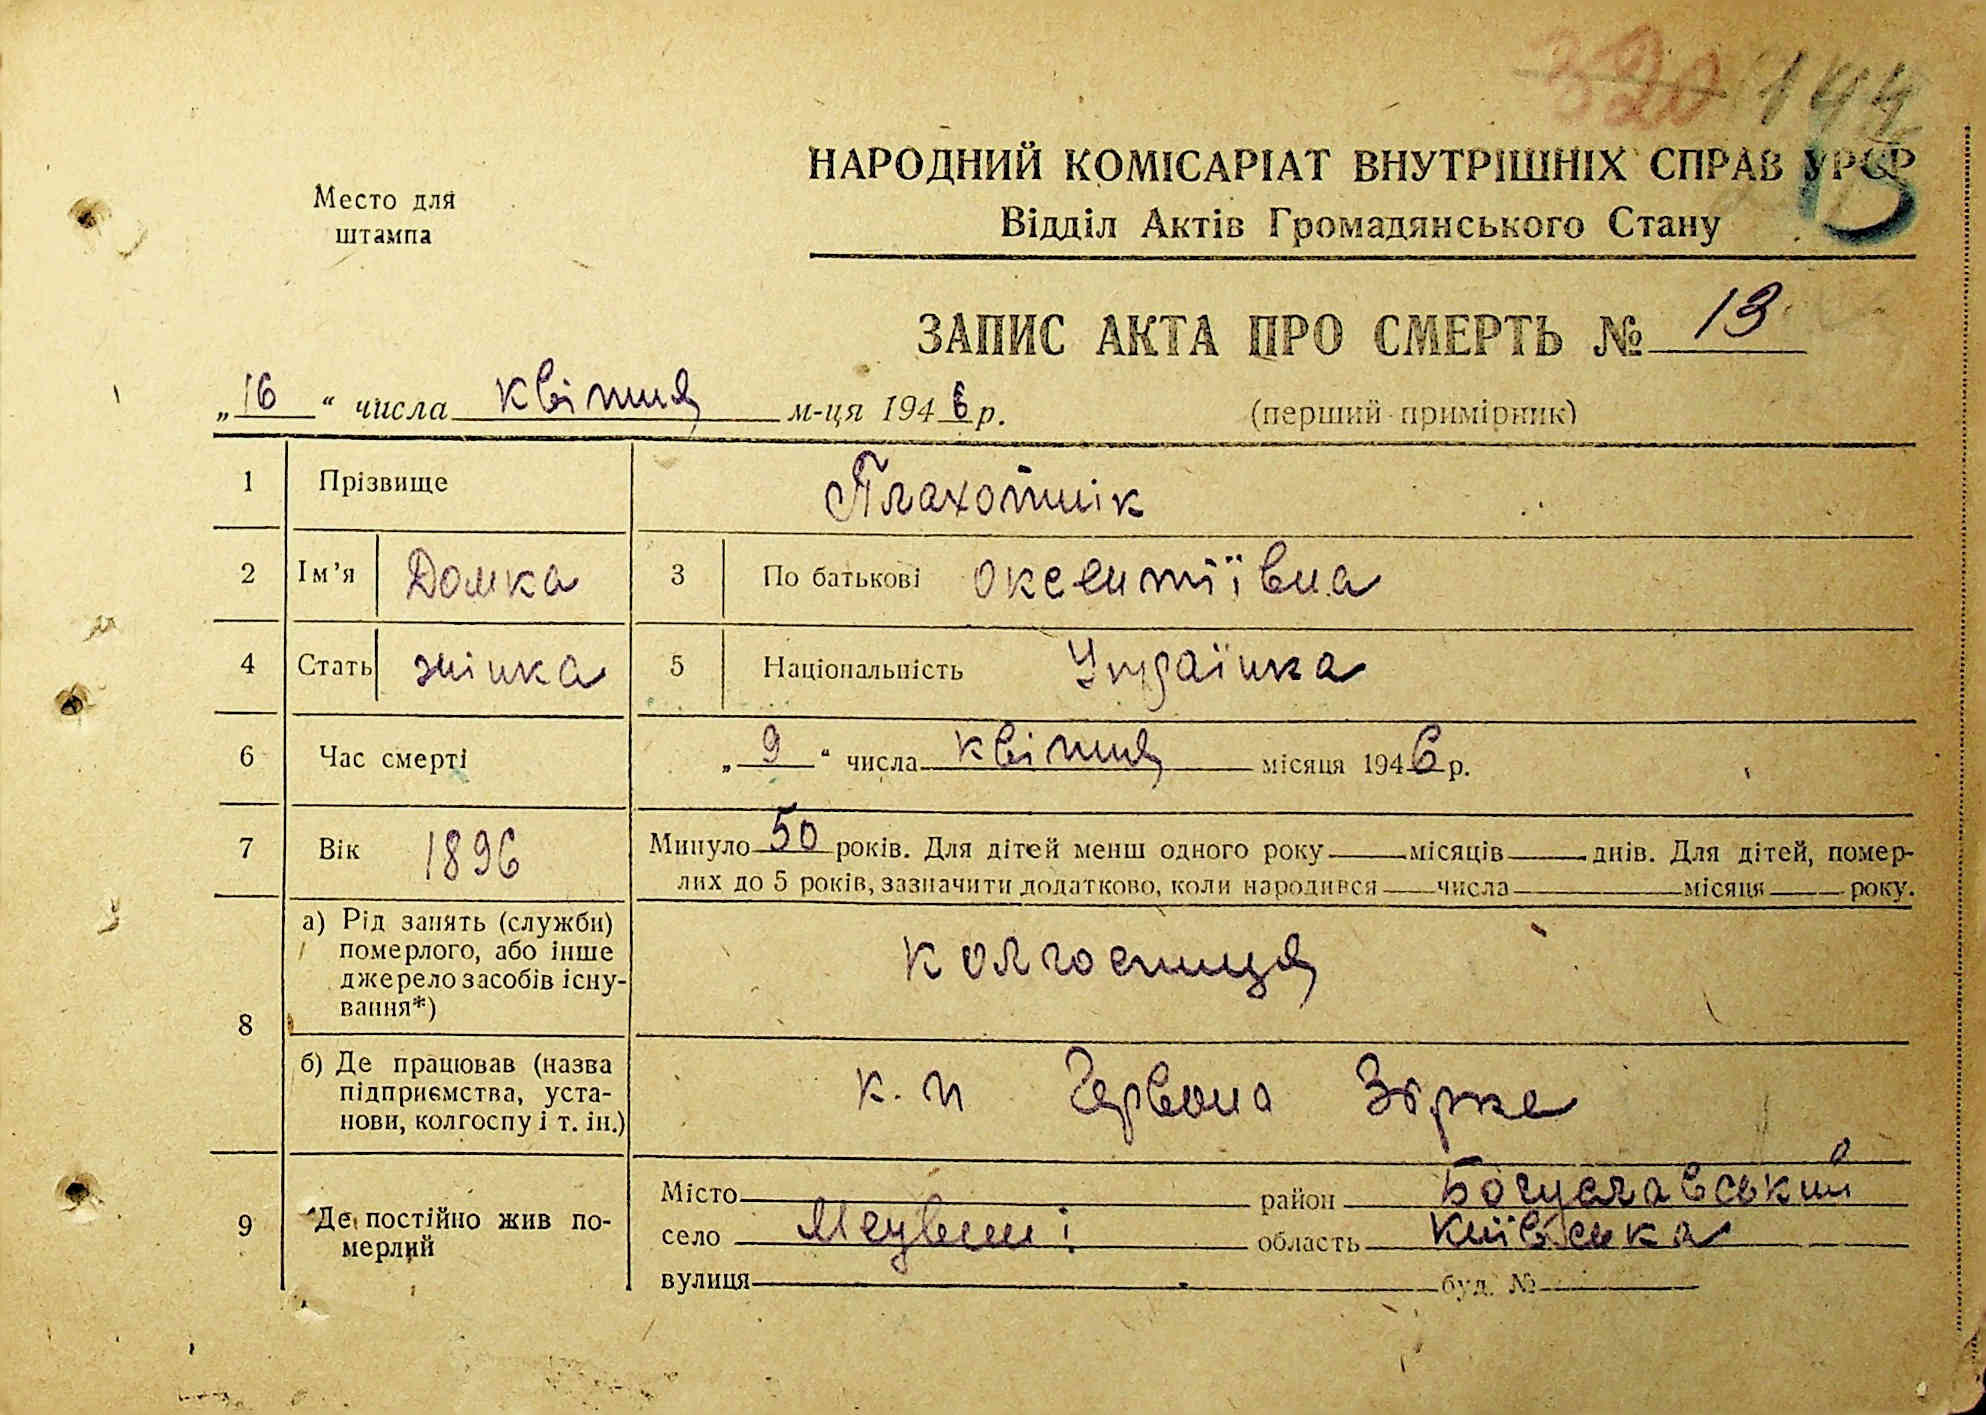 320 144
13
Место для
штампа
НАРОДНИЙ КОМІСАРІАТ ВНУТРІШНІХ СПРАВ УРСР
Відділ Актів Громадянського Стану
ЗАПИС АКТА ПРО СМЕРТЬ № 13
„16“ числа квітня м-ця 1946 р.
(перший примірник)
1 Прізвище Плахотнік
2 Ім’я Домка 3 По батькові Оксентіївна
4 Стать жінка 5 Національність Українка
6 Час смерті „9“ числа квітня місяця 1946 р.
7 Вік 1896 Минуло 50 років. Для дітей менш одного року місяців днів. Для дітей, помер-
лих до 5 років, зазначити додатково, коли народився числа місяця року.
8 а) Рід занять (служби)
померлого, або інше
джерело засобів існу-
вання*)
колгоспниця
б) Де працював (назва
підприємства, уста-
нови, колгоспу і т. ін.)
к. п Червона Зірка
9 Де постійно жив по-
мерлий
Місто район Богуславський
село область Київська
вулиця буд. №